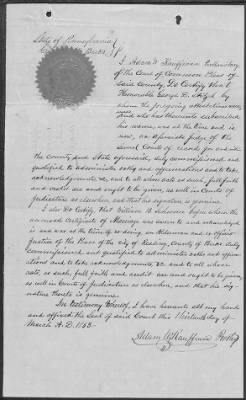 State of Pennsylvania
County of Berks SS
I Adam W. Kauffman Prothonotary
of the Court of Common Pleas of
said County, Do Certify that
Honorable George D. Stitzel by
whom the foregoing attestations were
and who has thereunto subscribed
his name, was at the time and is
now, an associate judge of the
several Courts of record for and in
the County and State aforesaid, duly commissioned and
qualified to administer oaths and affirmations and to take
acknowledgments, &c, and to all whose acts as such, full faith
and credit are and ought to be given, as well in Courts of
Judicature as elsewhere, and that his signature is genuine.
I also Do Certify that William H. before whom the
annexed Certificate of Marriage was sworn to and acknowledged
is and was at the time of so doing, an Alderman and ex officio
Justice of the Peace of the city of Reading, County of Berks duly
Commissioned and qualified to administer oaths and affirm-
ations and to take acknowledgments, &c and to all whose
acts, as such, full faith and credit are and ought to be given,
as well in Courts of Judicature as elsewhere, and that his sig-
nature thereto is genuine.
In testimony whereof, I have hereunto set my hand
and affixed the Seal of said Court this day of
March A.D. 1883-
Adam W Kauffman Prothy